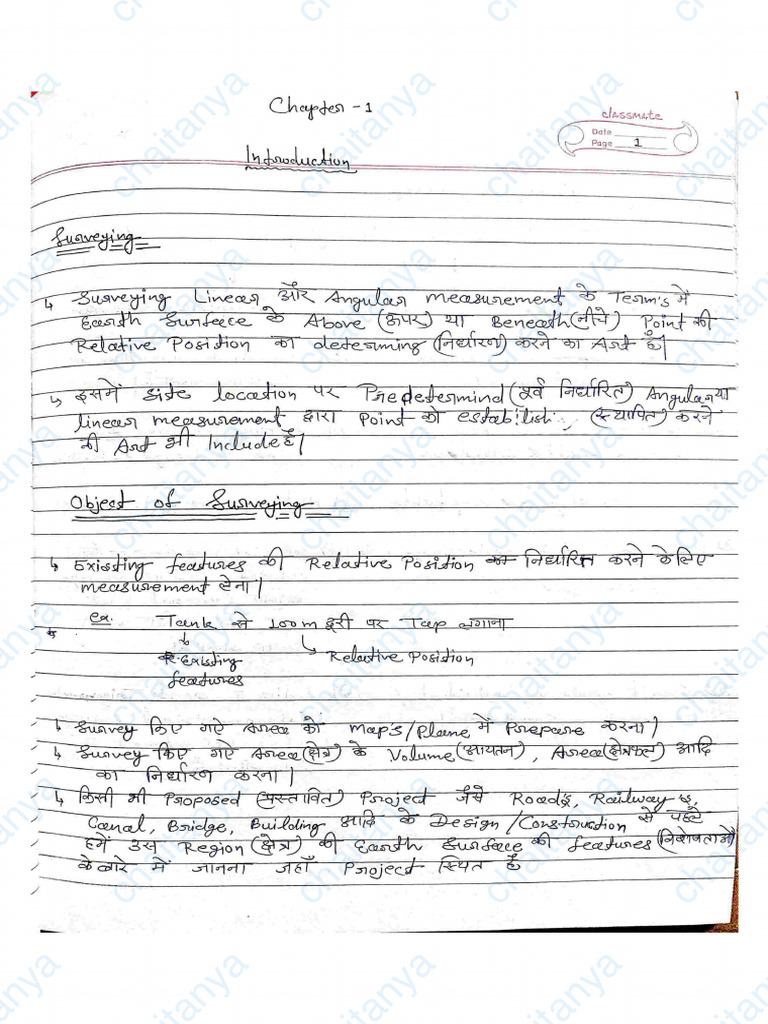 Chapter - 1
classmate
Date
Page 1
Introduction
Surveying
↳ Surveying Linear और Angular measurement के Term's में
Earth Surface के Above (ऊपर) या Beneath (नीचे) Point की
Relative Position का determing (निर्धारन) करने का Art है|
↳ इसमें site location पर Predetermind (पूर्व निर्धारित) Angular या
linear measurement द्वारा Point को establish, (स्थापित) करने
की Art भी Include है|
Object of Surveying
↳ Existing features की Relative Position का निर्धारित करने के लिए
measurement लेना|
ex. Tank से 100m दूरी पर Tap लगाना
Existing Relative Position
features
↳ Survey किए गऐ Area को Map's/Plane में Prepare करना|
↳ Survey किए गऐ Area (क्षेत्र) के Volume (आयतन), Area (क्षेत्रफल) आदि
का निर्धारण करना|
↳ किसी भी Proposed (प्रस्तावित) Project जैसे Road, Railway
Canal, Bridge, Building आदि के Design/Construction से पहले
हमें उस Region (क्षेत्र) की Earth Surface की features (विशेषताओं)
के बारे में जानना जहाँ Project स्थित है
chaitanya